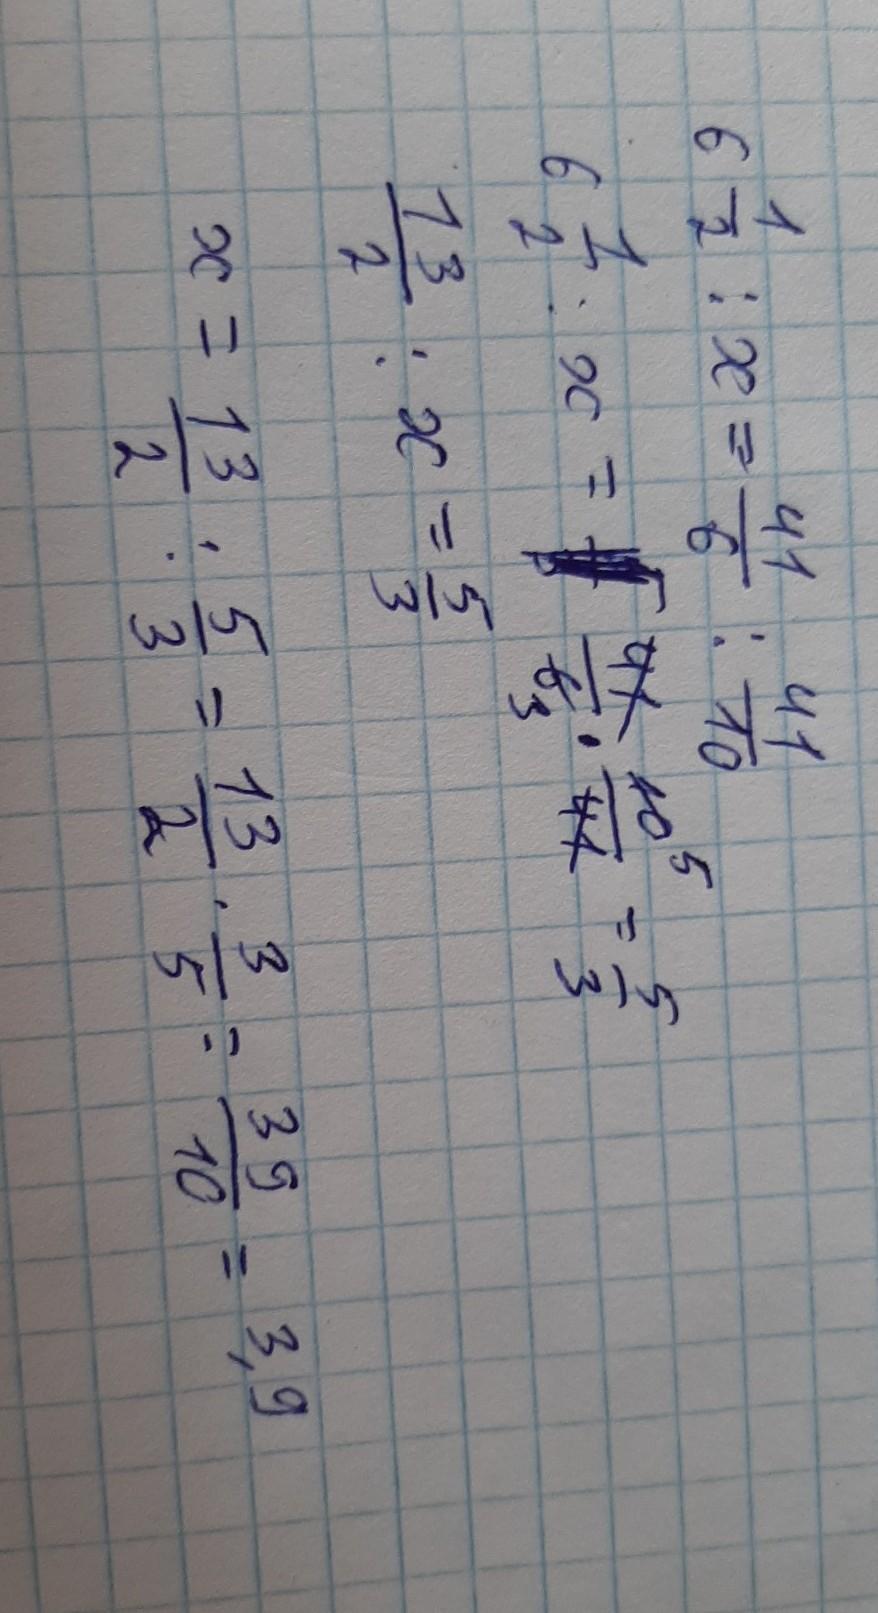 6 1/2 : x = 41/6 : 41/10
6 1/2 : x = 41/6 3 · 10 5/41 = 5/3
13/2 : x = 5/3
x = 13/2 : 5/3 = 13/2 · 3/5 = 39/10 = 3,9